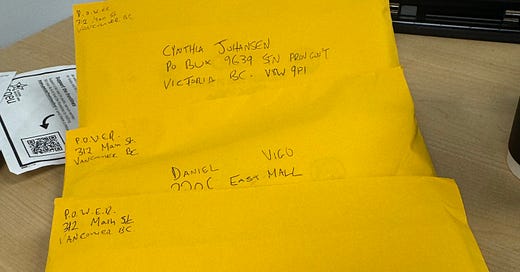 P.O.W.E.R.
312 Main St
VANCOUVER BC
CYNTHIA JOHANSEN
PO BOX 9639 STN PROV GOVT
VICTORIA BC. V8W 9P1
P.O.W.E.R.
312 Main St.
VANCOUVER BC
DANIEL VIGO
EAST MALL
P.O.W.E.R.
312 Main St
VANCOUVER BC